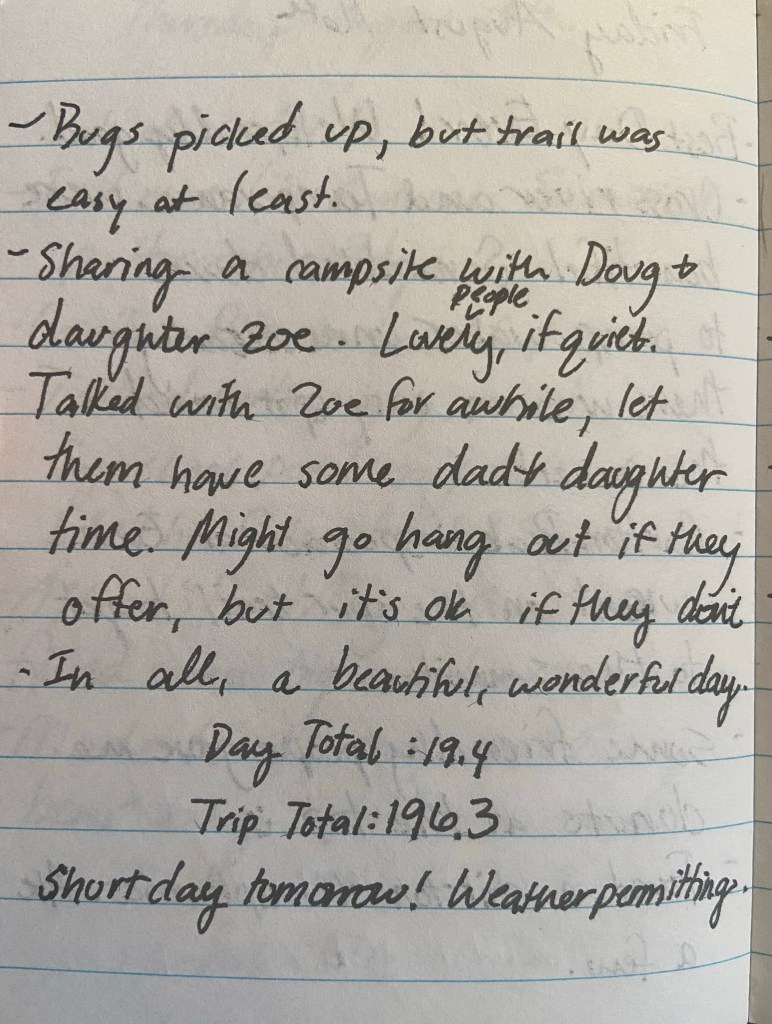 - Bugs picked up, but trail was
easy at least.
- Sharing a campsite with Doug +
people
daughter Zoe. Lovely, if quiet.
Talked with Zoe for awhile, let
them have some dad + daughter
time. Might go hang out if they
offer, but it's ok if they don't
- In all, a beautiful, wonderful day.
Day Total: 19.4
Trip Total: 196.3
Short day tomorrow! Weather permitting.